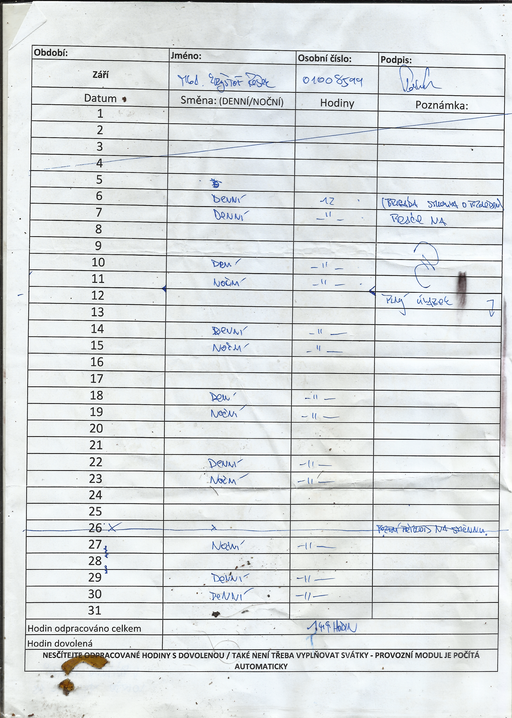 Období: Jméno: Osobní číslo: Podpis:
Září 01008599
Datum Směna: (DENNÍ/NOČNÍ) Hodiny Poznámka:
1
2
3
4
5
6 DENNÍ 12
7 DENNÍ —"— NA
8
9
10 DENÍ —"—
11 NOČNÍ —"—
12 PLNÝ ÚVAZEK
13
14 DENNÍ —"—
15 NOČNÍ —"—
16
17
18 DENÍ —"—
19 NOČNÍ —"—
20
21
22 DENNÍ —"—
23 NOČNÍ —"—
24
25
26 X x NA SMĚNU.
27 NOČNÍ —"—
28
29 DENNÍ —"—
30 DENNÍ —"—
31
Hodin odpracováno celkem HODIN
Hodin dovolená
NESČÍTEJTE ODPRACOVANÉ HODINY S DOVOLENOU / TAKÉ NENÍ TŘEBA VYPLŇOVAT SVÁTKY - PROVOZNÍ MODUL JE POČÍTÁ
AUTOMATICKY